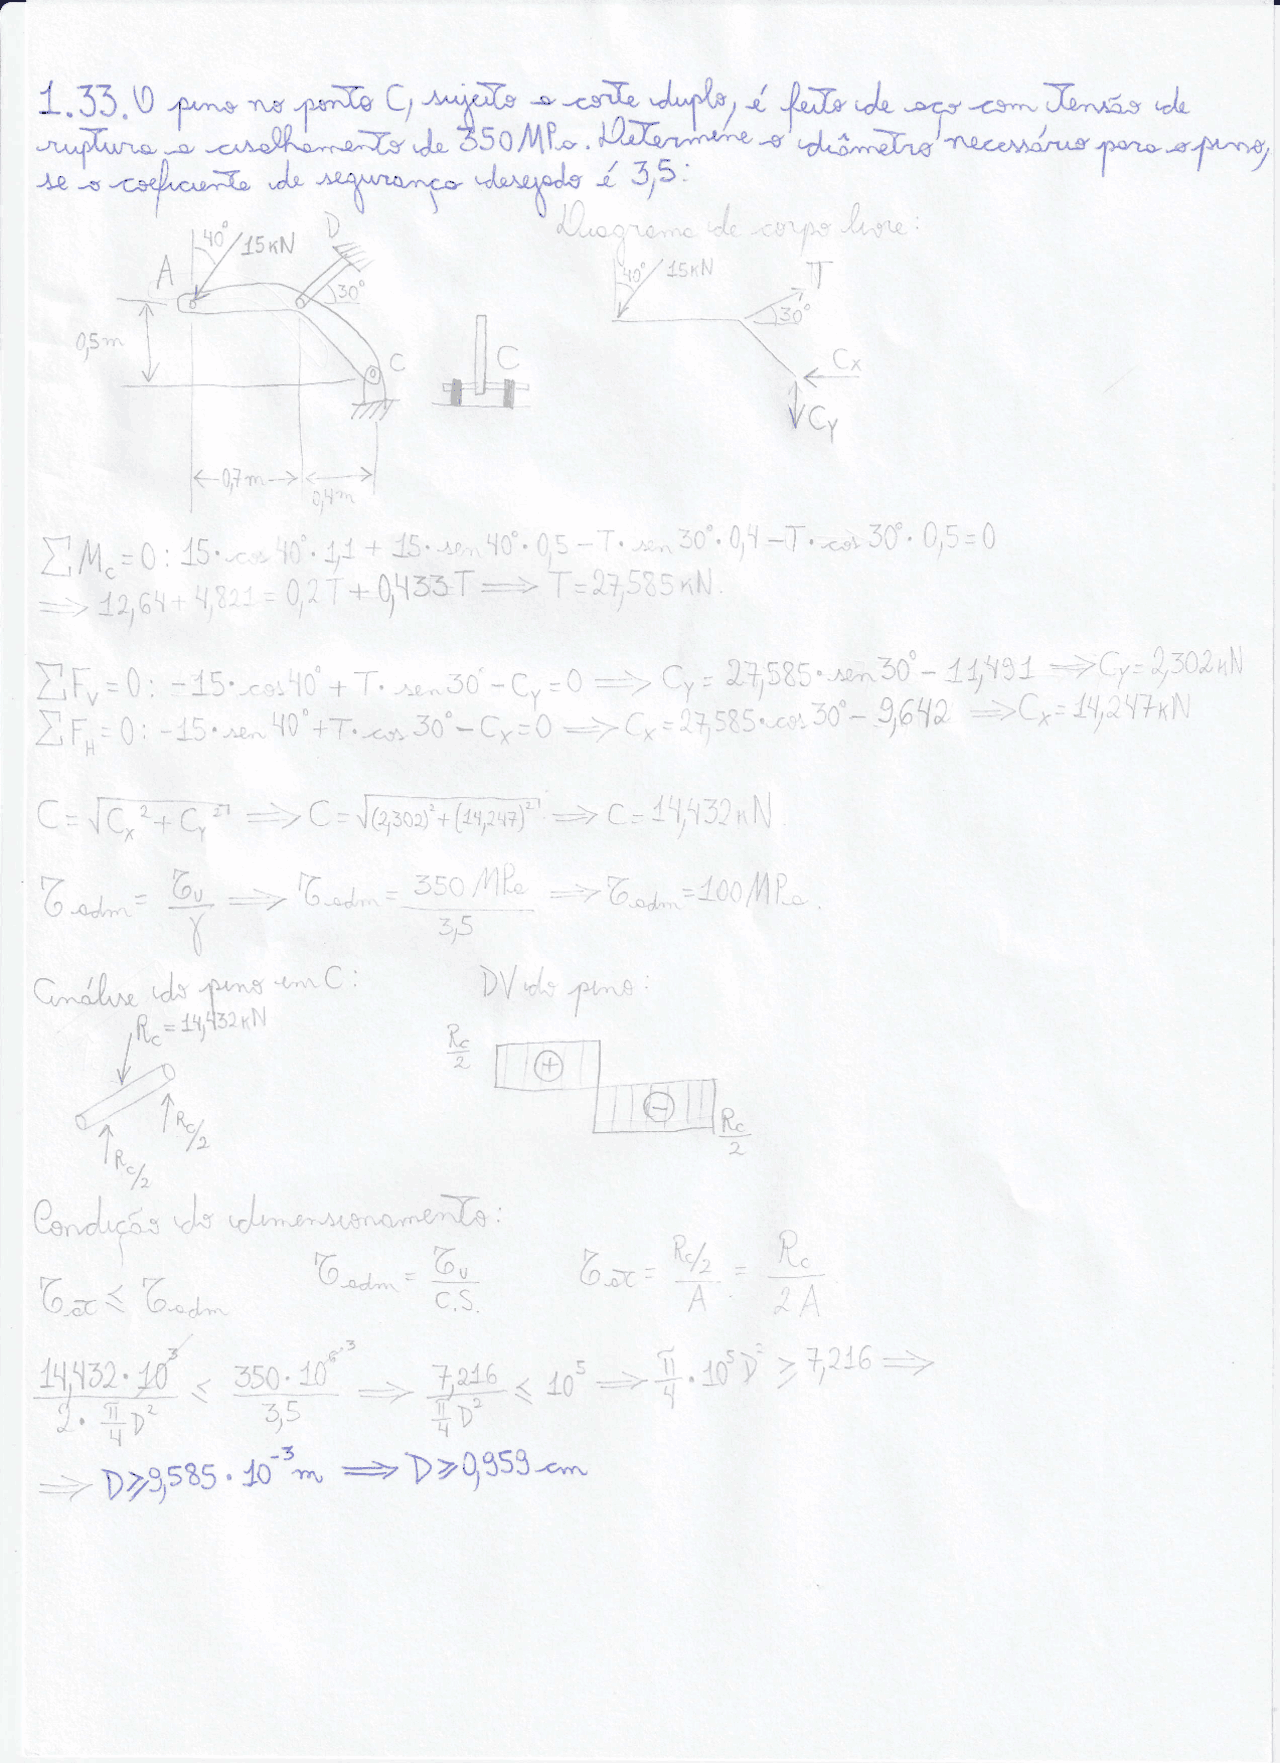 1.33. O pino no ponto C, sujeito a corte duplo, é feito de aço com tensão de
ruptura a cisalhamento de 350 MPa. Determine o diâmetro necessário para o pino,
se o coeficiente de segurança desejado é 3,5:
Diagrama de corpo livre:
A 40° 15 kN D 30°
0,5 m
C
C
0,7 m 0,4 m
40° 15 kN T 30°
Cx
Cy
∑Mc = 0: 15·cos 40°·1,1 + 15·sen 40°·0,5 − T·sen 30°·0,4 − T·cos 30°·0,5 = 0
⟹ 12,64 + 4,821 = 0,2T + 0,433T ⟹ T = 27,585 kN.
∑Fv = 0: −15·cos 40° + T·sen 30° − Cy = 0 ⟹ Cy = 27,585·sen 30° − 11,491 ⟹ Cy = 2,302 kN
∑FH = 0: −15·sen 40° + T·cos 30° − Cx = 0 ⟹ Cx = 27,585·cos 30° − 9,642 ⟹ Cx = 14,247 kN
C = √(Cx² + Cy²) ⟹ C = √((2,302)² + (14,247)²) ⟹ C = 14,432 kN.
τadm = τu/γ ⟹ τadm = 350 MPa/3,5 ⟹ τadm = 100 MPa.
Análise do pino em C: DV do pino:
Rc = 14,432 kN
Rc/2
Rc/2
Rc/2 +
− Rc/2
Condição do dimensionamento:
τat ≤ τadm τadm = τu/C.S. τat = (Rc/2)/A = Rc/2A
14,432·10³/(2·π/4 D²) ≤ 350·10⁶⁻³/3,5 ⟹ 7,216/(π/4 D²) ≤ 10⁵ ⟹ π/4·10⁵ D² ≥ 7,216 ⟹
⟹ D ≥ 9,585·10⁻³ m ⟹ D ≥ 0,959 cm